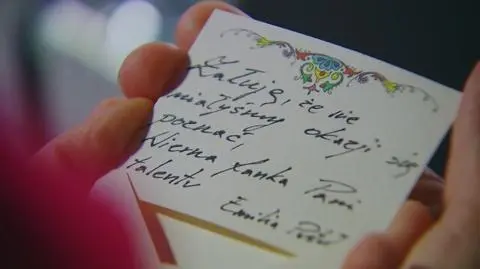 Żałuję, że nie
miałyśmy okazji się
poznać,
Wierna fanka Pani
talentu
Emilia